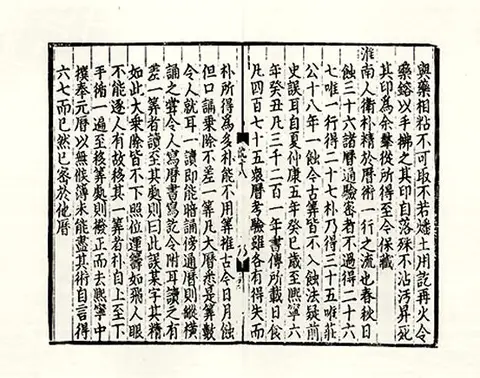 與藥相粘不可取不若燔土用訖再火令
藥鎔以手拂之其印自落殊不沾污昇死
其印為余羣從所得至今保藏
淮南人衛朴精於曆術一行之流也春秋日
蝕三十六諸曆通驗密者不過得二十六
七唯一行得二十七朴乃得三十五唯莊
公十八年一蝕今古筭皆不入蝕法疑前
史誤耳自夏仲康五年癸巳歲至熙寧六
年癸丑凡三千二百一年書傳所載日食
凡四百七十五衆曆考驗雖各有得失而
朴所得為多朴能不用筭推古今日月蝕
但口誦乘除不差一筭凡大曆悉是筭數
令人就耳一讀即能暗誦傍通曆則縱橫
誦之嘗令人寫曆書寫訖令附耳讀之有
差一筭者讀至其處則曰此誤某字其精
如此大乘除皆不下照位運籌如飛人眼
不能逐人有故移其一筭者朴自上至下
手循一遍至移筭處則撥正而去熙寧中
撰奉元曆以無候簿未能盡其術自言得
六七而已然已密於他曆